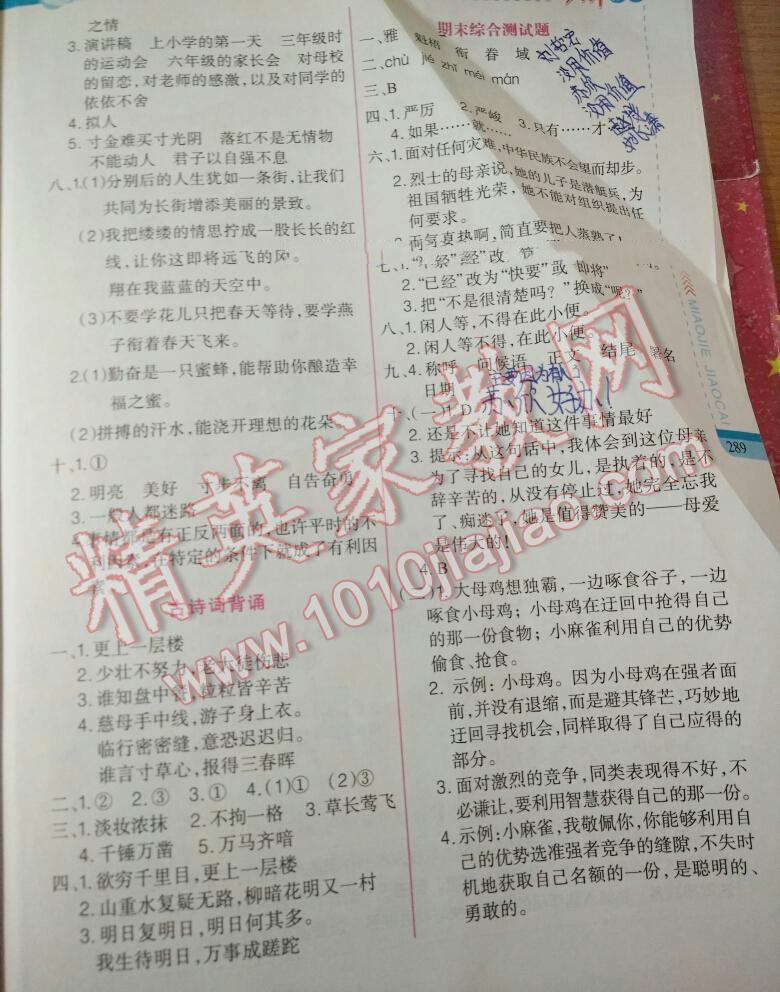 之情
3. 演讲稿 上小学的第一天 三年级时
的运动会 六年级的家长会 对母校
的留恋, 对老师的感激, 以及对同学的
依依不舍
4. 拟人
5. 寸金难买寸光阴 落红不是无情物
不能动人 君子以自强不息
八、1. (1)分别后的人生犹如一条街, 让我们
共同为长街增添美丽的景致。
(2)我把缕缕的情思拧成一股长长的红
线, 让你这即将远飞的风
翔在我蓝蓝的天空中。
(3)不要学花儿只把春天等待, 要学燕
子衔着春天飞来。
2. (1)勤奋是一只蜜蜂, 能帮助你酿造幸
福之蜜。
(2)拼搏的汗水, 能浇开理想的花朵。
十、1. ①
2. 明亮 美好 寸步不离 自告奋勇
3. 一般人都迷路
4. 事情都是有正反两面的, 也许平时的不
利因素, 在特定的条件下就成了有利因
素。
古诗词背诵
一、1. 更上一层楼
2. 少壮不努力, 老大徒伤悲
3. 谁知盘中餐, 粒粒皆辛苦
4. 慈母手中线, 游子身上衣。
临行密密缝, 意恐迟迟归。
谁言寸草心, 报得三春晖
二、1. ② 2. ③ 3. ① 4. (1)① (2)③
三、1. 淡妆浓抹 2. 不拘一格 3. 草长莺飞
4. 千锤万凿 5. 万马齐喑
四、1. 欲穷千里目, 更上一层楼
2. 山重水复疑无路, 柳暗花明又一村
3. 明日复明日, 明日何其多。
我生待明日, 万事成蹉跎
期末综合测试题
一、雅 魁梧 衔 眷 域
二、chù jié zhī méi mán
三、B
四、1. 严厉 2. 严峻 3. 只有……才
4. 如果……就……
六、1. 面对任何灾难, 中华民族不会望而却步。
2. 烈士的母亲说, 她的儿子是潜艇兵, 为
祖国牺牲光荣, 她不能对组织提出任
何要求。
夏热啊, 简直要把人蒸熟了!
七、1.
2. “已经”改为“快要”或“即将”
3. 把“不是很清楚吗?”换成“呢?”
八、1. 闲人等, 不得在此小便。
2. 闲人等不得, 在此小便。
九、4. 称呼 问候语 正文 结尾 署名
日期
十、(一)1. D
2. 还是不让她知道这件事情最好
3. 提示: 从这句话中, 我体会到这位母亲
为了寻找自己的女儿, 是执着的, 是不
辞辛苦的, 从没有停止过, 她完全忘我
了、痴迷了, 她是值得赞美的——母爱
是伟大的!
4. B
(二)1. 大母鸡想独霸, 一边啄食谷子, 一边
啄食小母鸡; 小母鸡在迂回中抢得自己
的那一份食物; 小麻雀利用自己的优势
偷食、抢食。
2. 示例: 小母鸡。因为小母鸡在强者面
前, 并没有退缩, 而是避其锋芒, 巧妙地
迂回寻找机会, 同样取得了自己应得的
部分。
3. 面对激烈的竞争, 同类表现得不好, 不
必谦让, 要利用智慧获得自己的那一份。
4. 示例: 小麻雀, 我敬佩你, 你能够利用自
己的优势选准强者竞争的缝隙, 不失时
机地获取自己名额的一份, 是聪明的、
勇敢的。
MIAOJIE JIAOCAI
289
精英家教网
www.1010jiajiao.com